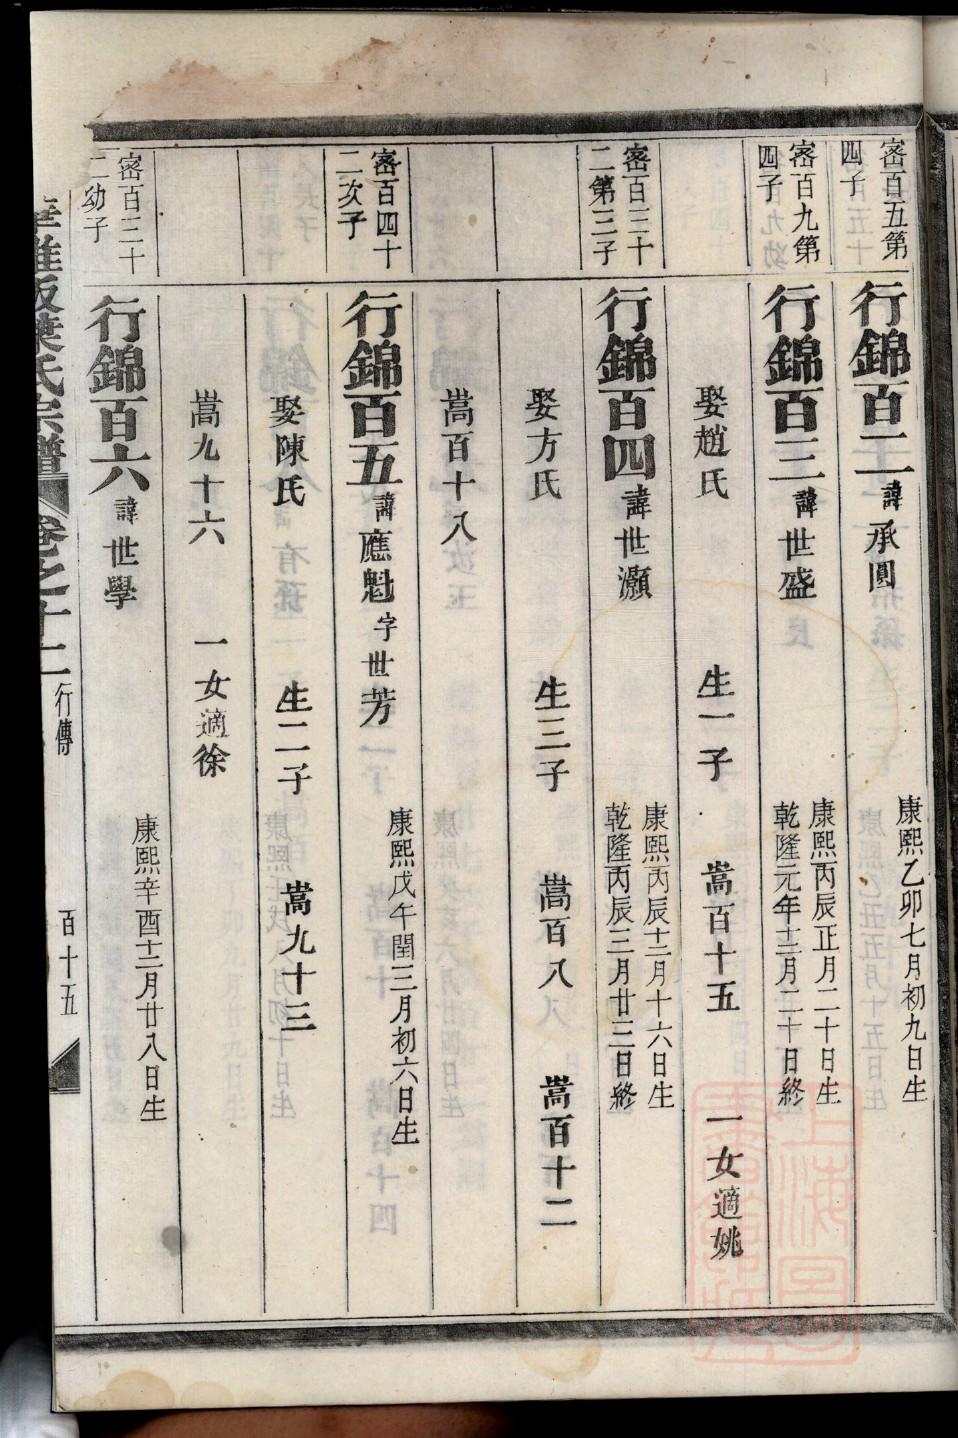 密百五第
四子
行錦百二諱承圓
康熙乙卯七月初九日生
密百九第
四子
行錦百三諱世盛
康熙丙辰正月二十日生
乾隆元年十二月二十日終
娶趙氏 生一子 嵩百十五 一女適姚
密百三十
二第三子
行錦百四諱世灝
康熙丙辰十二月十六日生
乾隆丙辰三月廿三日終
娶方氏 生三子 嵩百八 嵩百十二
嵩百十八
密百四十
二次子
行錦百五諱應魁字世芳
康熙戊午閏三月初六日生
娶陳氏 生二子 嵩九十三
嵩九十六 一女適徐
密百三十
二幼子
行錦百六諱世學
康熙辛酉十二月廿八日生
葉氏宗譜 卷之十二 行傳 百十五
上海圖